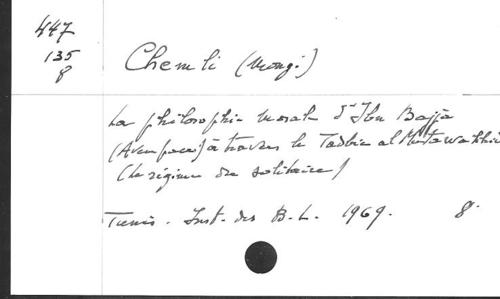 447
135
8
Chemli (Mongi)
La philosophie morale d'Ibn Bajja
(Avempace) à travers le Tadbir al Mutawahhid
(le régime du solitaire)
Tunis. Inst. des B.L. 1969. 8.